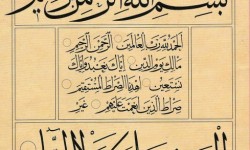 بسم الله الرحمن الرحيم
الحمد لله رب العالمين الرحمن الرحيم
مالك يوم الدين إياك نعبد وإياك
نستعين اهدنا الصراط المستقيم
صراط الذين أنعمت عليهم غير